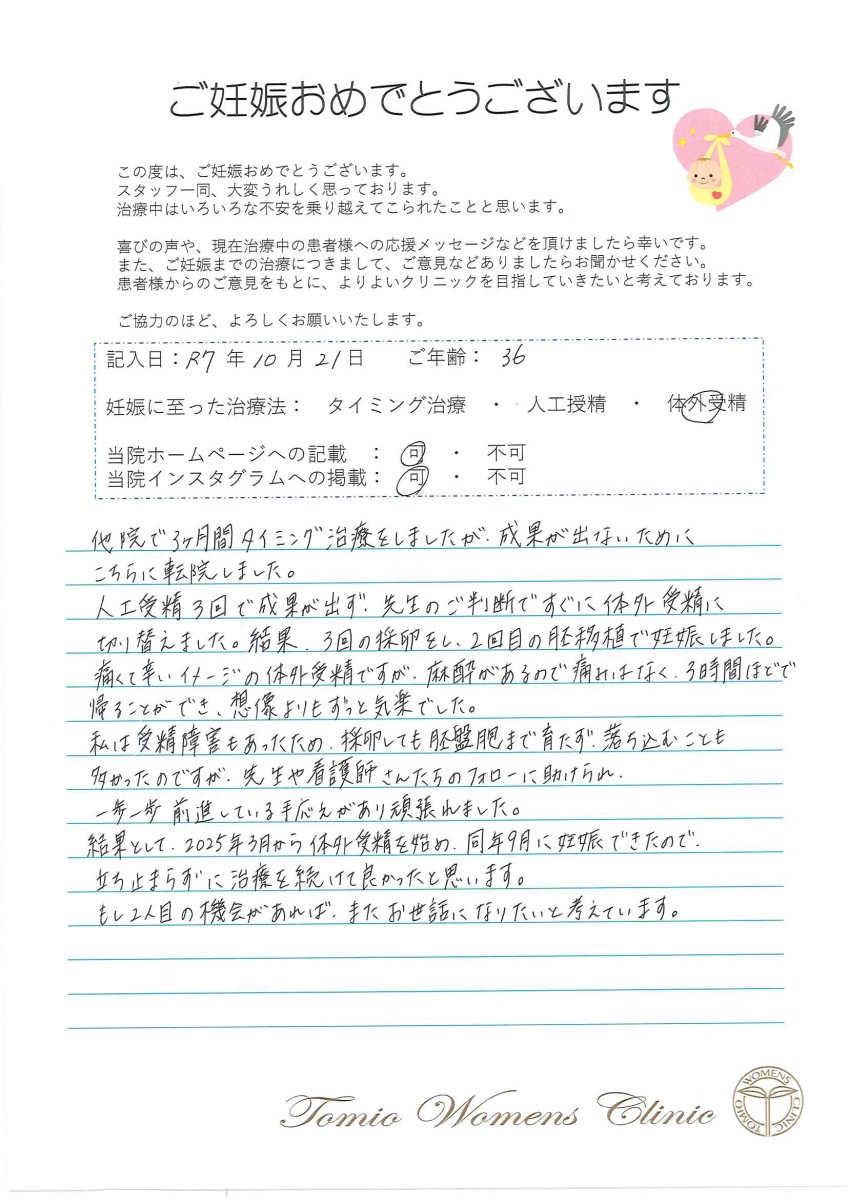 ご妊娠おめでとうございます
この度は、ご妊娠おめでとうございます。
スタッフ一同、大変うれしく思っております。
治療中はいろいろな不安を乗り越えてこられたことと思います。
喜びの声や、現在治療中の患者様への応援メッセージなどを頂けましたら幸いです。
また、ご妊娠までの治療につきまして、ご意見などありましたらお聞かせください。
患者様からのご意見をもとに、よりよいクリニックを目指していきたいと考えております。
ご協力のほど、よろしくお願いいたします。
記入日：R7 年 10 月 21 日 ご年齢： 36
妊娠に至った治療法： タイミング治療 ・ 人工授精 ・ 体外受精
当院ホームページへの記載 ： 可 ・ 不可
当院インスタグラムへの掲載： 可 ・ 不可
他院で3ヶ月間タイミング治療をしましたが、成果が出ないために
こちらに転院しました。
人工受精3回で成果が出ず、先生のご判断ですぐに体外受精に
切り替えました。結果、3回の採卵をし、2回目の胚移植で妊娠しました。
痛くて辛いイメージの体外受精ですが、麻酔があるので痛みはなく、3時間ほどで
帰ることができ、想像よりもずっと気楽でした。
私は受精障害もあったため、採卵しても胚盤胞まで育たず、落ち込むことも
多かったのですが、先生や看護師さんたちのフォローに助けられ、
一歩一歩前進している手応えがあり頑張れました。
結果として、2025年3月から体外受精を始め、同年9月に妊娠できたので、
立ち止まらずに治療を続けて良かったと思います。
もし2人目の機会があれば、またお世話になりたいと考えています。
Tomio Womens Clinic
TOMIO WOMENS CLINIC